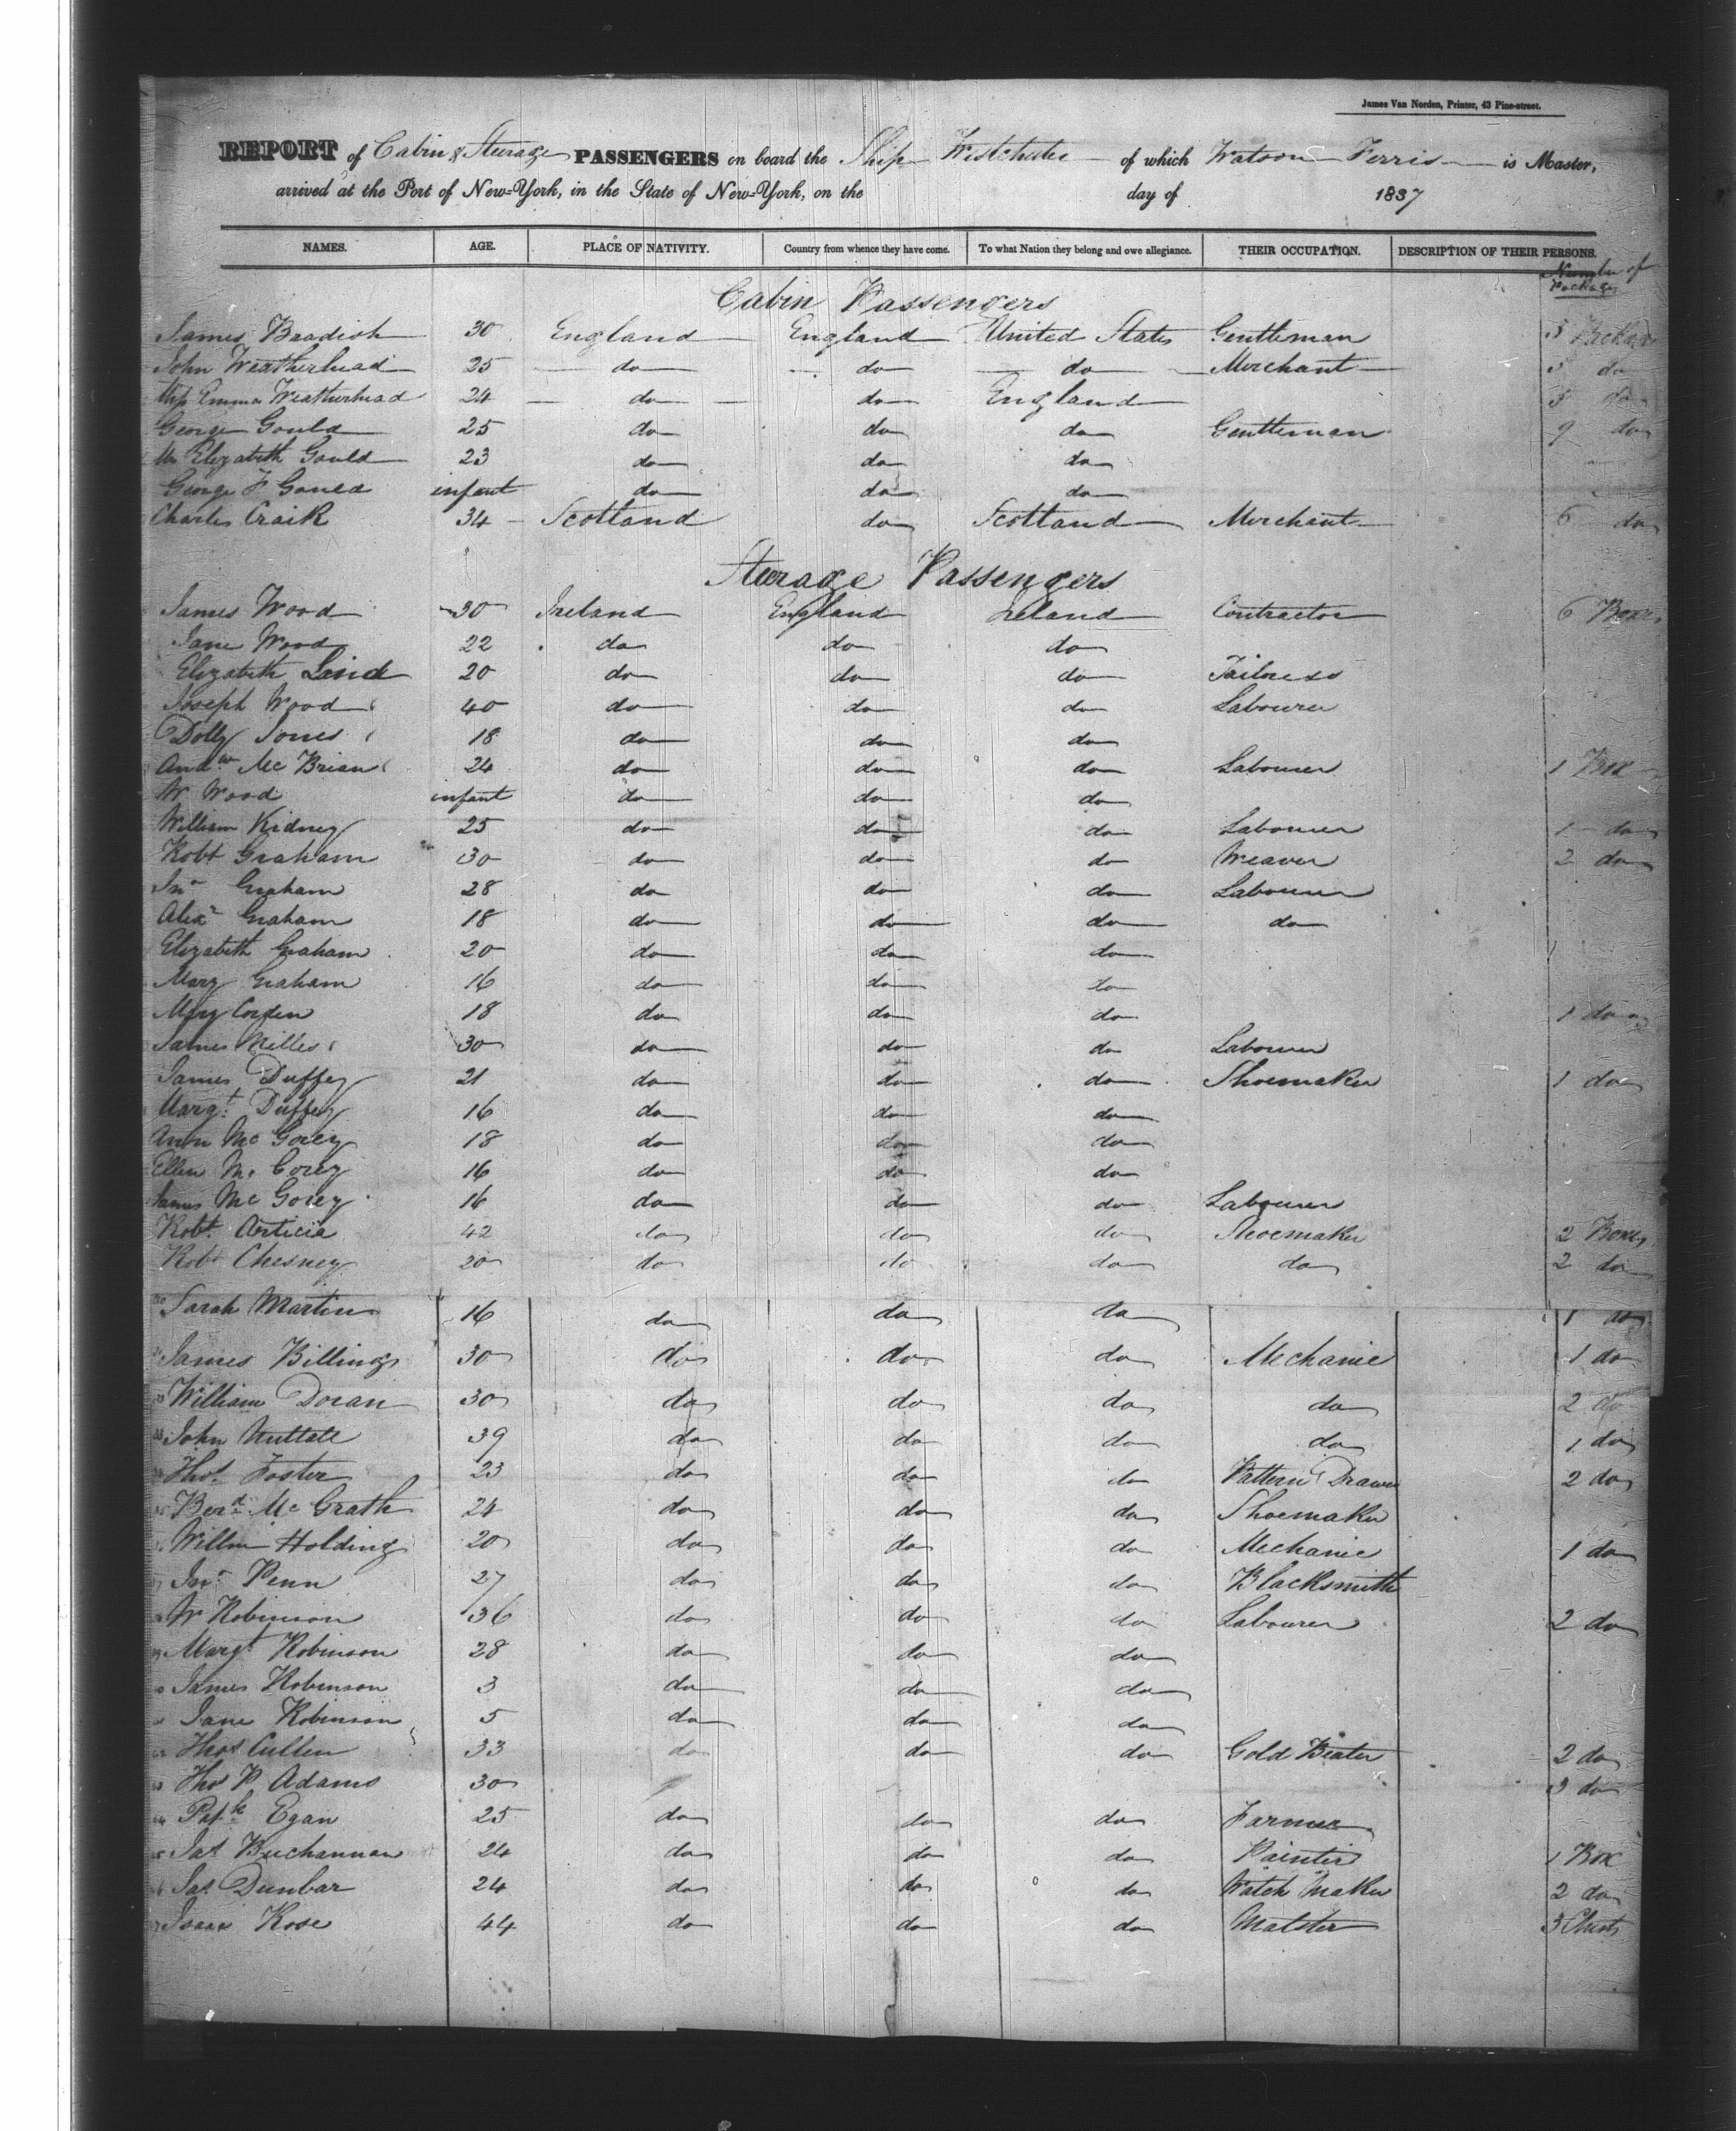 James Van Norden, Printer, 43 Pine-street.
REPORT of Cabin & Steerage PASSENGERS on board the Ship Westchester of which Watson Ferris is Master,
arrived at the Port of New-York, in the State of New-York, on the day of 1837
NAMES. AGE. PLACE OF NATIVITY. Country from whence they have come. To what Nation they belong and owe allegiance. THEIR OCCUPATION. DESCRIPTION OF THEIR PERSONS.
Number of
Packages
Cabin Passengers
James Bradish 30 England England United States Gentleman 5
John Weatherhead 25 do do do Merchant 5 do
Emma Weatherhead 24 do do England 5 do
George Gould 25 do do do Gentleman 9 do
Elizabeth Gould 23 do do do
George F Gould infant do do do
Charles Craik 34 Scotland do Scotland Merchant 6 do
Steerage Passengers
James Wood 30 Ireland England Ireland Contractor 6 Boxes
Jane Wood 22 do do do
Elizabeth 20 do do do Tailoress
Joseph Wood 40 do do do Labourer
Dolly Jones 18 do do do
Andw Mc Brian 24 do do do Labourer 1 Box
W Wood infant do do do
William Kidney 25 do do do Labourer 1 do
Robt Graham 30 do do do Weaver 2 do
Jno Graham 28 do do do Labourer
Alexr Graham 18 do do do do
Elizabeth Graham 20 do do do
Mary Graham 16 do do do
Mary 18 do do do 1 do
James 30 do do do Labourer
James Duffey 21 do do do Shoemaker 1 do
Margt Duffey 16 do do do
Ann Mc Gorey 18 do do do
Ellen Mc Corey 16 do do do
James Mc Gorey 16 do do do Labourer
Robt 42 do do do Shoemaker 2 Boxes
Robt Chesney 20 do do do do 2 do
Sarah Martin 16 do do do 1 do
James Billings 30 do do do Mechanic 1 do
William Doran 30 do do do do 2 do
John 39 do do do do 1 do
Thos Foster 23 do do do Pattern Drawer 2 do
Berd Mc Grath 24 do do do Shoemaker
Willm Holding 20 do do do Mechanic 1 do
Jno Penn 27 do do do Blacksmith
W Robinson 36 do do do Labourer 2 do
Margt Robinson 28 do do do
James Robinson 3 do do do
Jane Robinson 5 do do do
Thos Cullen 33 do do do Gold Beater 2 do
Thos P Adams 30 3 do
Patk Egan 25 do do do Farmer
Jas Buchannan 24 do do do Painter 1 Box
Jas Dunbar 24 do do do Watch Maker 2 do
Isaac Rose 44 do do do Malster 3 Chests